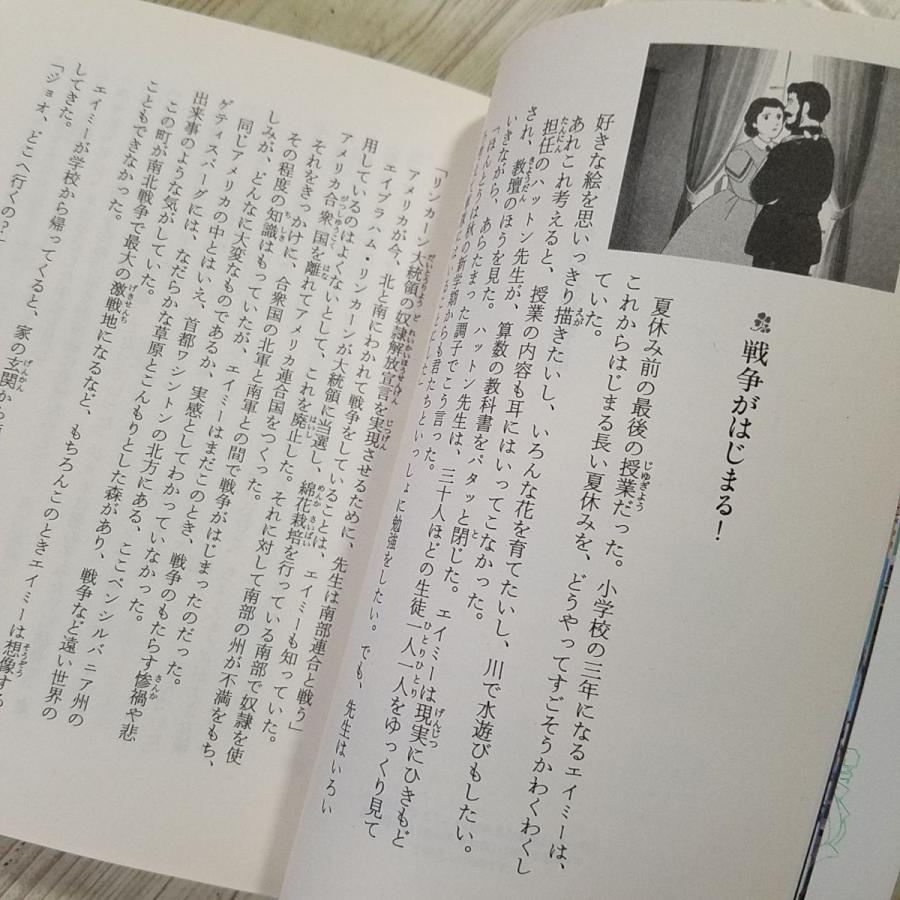 戦争がはじまる！
夏休み前の最後の授業だった。小学校の三年になるエイミーは、
これからはじまる長い夏休みを、どうやってすごそうかわくわくし
ていた。
好きな絵を思いっきり描きたいし、いろんな花を育てたいし、川で水遊びもしたい。
あれこれ考えると、授業の内容も耳にはいってこなかった。
担任のハットン先生が、算数の教科書をパタッと閉じた。エイミーは現実にひきもど
され、教壇のほうを見た。ハットン先生は、三十人ほどの生徒一人一人をゆっくり見て
いきながら、あらたまった調子でこう言った。
「ほんとうは秋の新学期からも君たちといっしょに勉強をしたい。でも、先生はいろい
「リンカーン大統領の奴隷解放宣言を実現させるために、先生は南部連合と戦う」
アメリカが今、北と南にわかれて戦争をしていることは、エイミーも知っていた。
エイブラハム・リンカーンが大統領に当選し、綿花栽培を行っている南部で奴隷を使
用しているのはよくないとして、これを廃止した。それに対して南部の州が不満をもち、
アメリカ合衆国を離れてアメリカ連合国をつくった。
それをきっかけに、合衆国の北軍と南軍との間で戦争がはじまったのだった。
その程度の知識はもっていたが、エイミーはまだこのとき、戦争のもたらす惨禍や悲
しみが、どんなに大変なものであるか、実感としてわかっていなかった。
同じアメリカの中とはいえ、首都ワシントンの北方にある、ここペンシルバニア州の
ゲティスバーグには、なだらかな草原とこんもりとした森があり、戦争など遠い世界の
出来事のような気がしていた。
この町が南北戦争で最大の激戦地になるなど、もちろんこのときエイミーは想像する
こともできなかった。
エイミーが学校から帰ってくると、家の玄関から
してきた。
「ジョオ、どこへ行くの？」